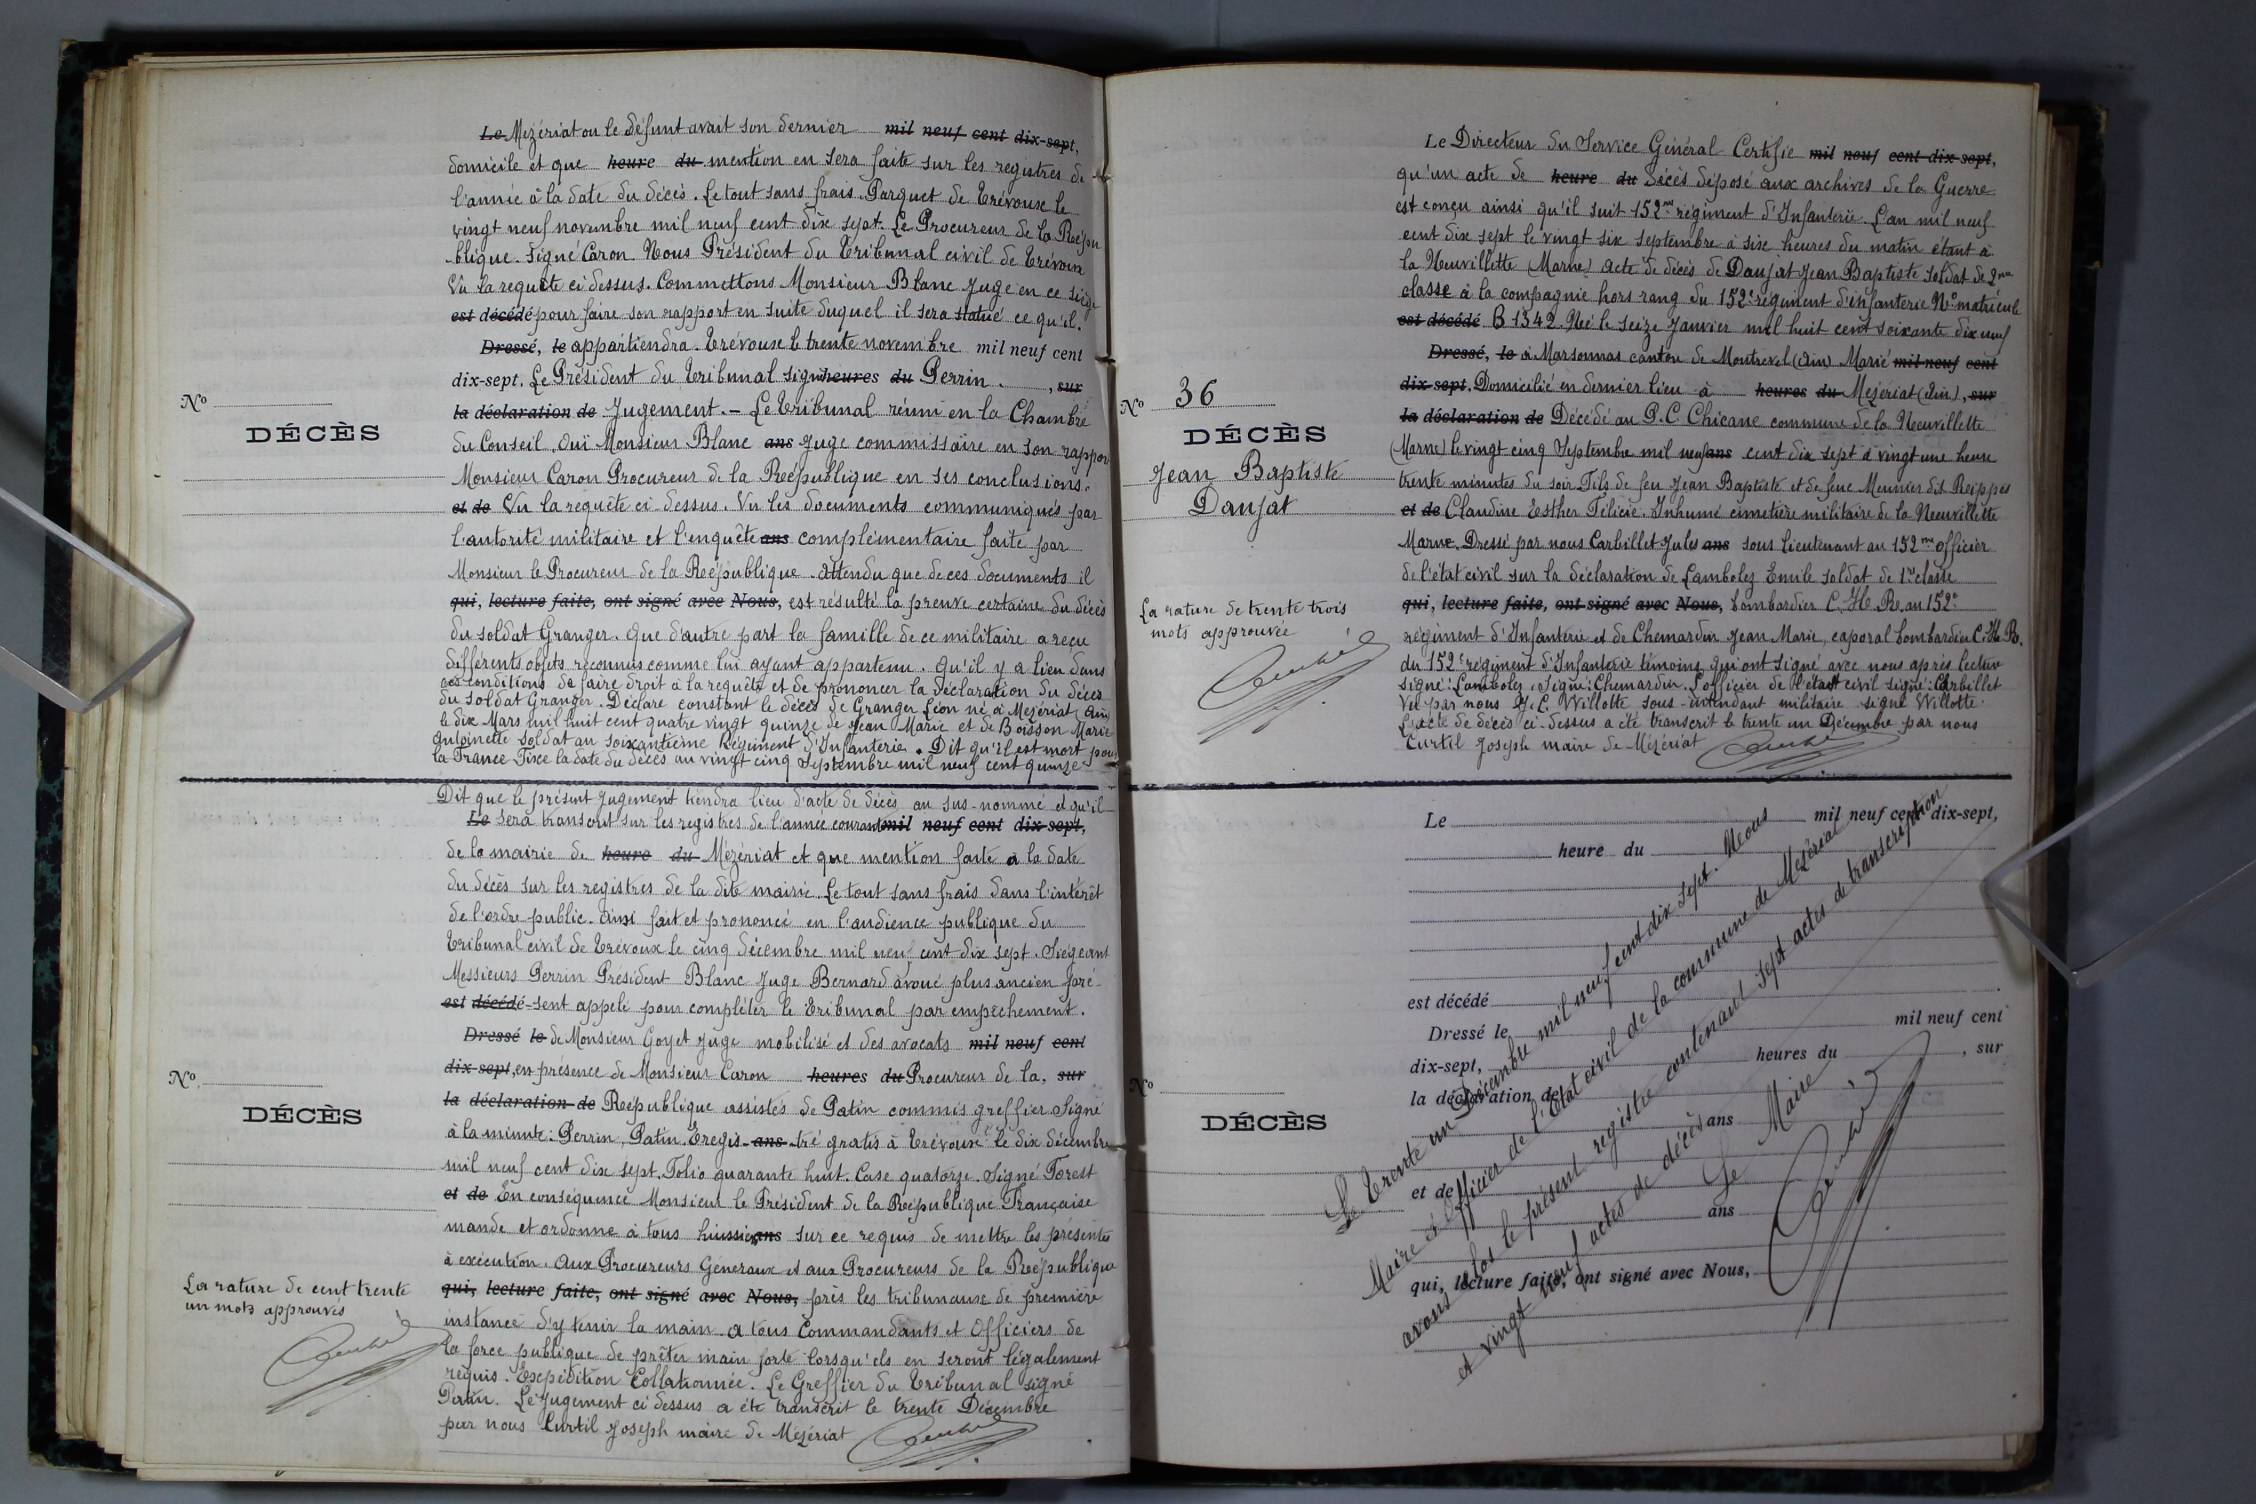 Le Mézériat ou le défunt avait son dernier mil neuf cent dix-sept,
domicile et que heure du mention en sera faite sur les registres de
l'année à la date du décès. Le tout sans frais. Parquet de Trévoux le
vingt neuf novembre mil neuf cent dix sept. Le Procureur de la Répu
blique. Signé Caron Nous Président du Tribunal civil de Trévoux
Vu la requête ci dessus. Commettons Monsieur Blanc Juge en ce siège
est décédé pour faire son rapport en suite duquel il sera statué ce qu'il.
Dressé, le appartiendra. Trévoux le trente novembre mil neuf cent
dix-sept. Le Président du Tribunal signé heures du Perrin. , sur
Nº
la déclaration de Jugement. – Le Tribunal réuni en la Chambre
DÉCÈS
du Conseil. Oui Monsieur Blanc ans Juge commissaire en son rappor
Monsieur Caron Procureur de la République en ses conclusions.
et de Vu la requête ci-dessus. Vu les documents communiqués par
l'autorité militaire et l'enquête ans complémentaire faite par
Monsieur le Procureur de la République. Attendu que de ces documents il
qui, lecture faite, ont signé avec Nous, est résulté la preuve certaine du décès
du soldat Granger. Que d'autre part la famille de ce militaire a reçu
différents objets reconnus comme lui ayant appartenu. Qu'il y a lieu dans
ces conditions de faire droit à la requête et de prononcer la déclaration du décès
du soldat Granger. Déclare constant le décès de Granger Léon né à Mézériat (Ain)
le dix Mars mil huit cent quatre vingt quinze de Jean Marie et de Boisson Marie
Antoinette soldat au soixantième Régiment d'Infanterie. Dit qu'il est mort pour
la France Fixe la date du décès au vingt cinq Septembre mil neuf cent quinze
Dit que le présent jugement tiendra lieu d'acte de décès au sus-nommé et qu'il
Le sera transcrit sur les registres de l'année courante mil neuf cent dix-sept,
de la mairie de heure du Mézériat et que mention faite à la date
du décès sur les registres de la dite mairie. Le tout sans frais dans l'intérêt
de l'ordre public. Ainsi fait et prononcé en l'audience publique du
Tribunal civil de Trévoux le cinq décembre mil neuf cent dix sept. Siégeant
Messieurs Perrin Président Blanc Juge Bernard avoué plus ancien pré-
est décédé-sent appelé pour compléter le Tribunal par empêchement.
Dressé le de Monsieur Goyet Juge mobilisé et des avocats mil neuf cent
dix-sept, en présence de Monsieur Caron heures du Procureur de la, sur
Nº
la déclaration de République assistés de Patin commis greffier Signé
DÉCÈS
à la minute: Perrin, Patin. Eregis- ans -tré gratis à Trévoux le dix décembre
mil neuf cent dix sept. Folio quarante huit. Case quatorze. Signé Forest
et de En conséquence Monsieur le Président de la République Française
mande et ordonne à tous huissiers ans sur ce requis de mettre les présentes
à exécution. Aux Procureurs Généraux et aux Procureurs de la République
La rature de cent trente
un mots approuvés
qui, lecture faite, ont signé avec Nous, près les tribunaux de première
instance d'y tenir la main. A tous Commandants et Officiers de
la force publique de prêter main forte lorsqu'ils en seront légalement
requis. Expédition Collationnée. Le Greffier du Tribunal signé
Patin. Le Jugement ci dessus a été transcrit le trente Décembre
par nous Curtil Joseph maire de Mézériat
Le Directeur du Service Général Certifie mil neuf cent dix-sept,
qu'un acte de heure du décès déposé aux archives de la Guerre
est conçu ainsi qu'il suit 152me régiment d'Infanterie. L'an mil neuf
cent dix sept le vingt six septembre à six heures du matin étant à
la Neuvillette (Marne) acte de décès de Daujat Jean Baptiste soldat de 2me
classe à la compagnie hors rang du 152e régiment d'infanterie Nº matricule
est décédé B 1342. Né le seize Janvier mil huit cent soixante dix neuf
Dressé, le à Marsonnas canton de Montrevel (Ain) Marié mil neuf cent
dix-sept. Domicilié en dernier lieu à heures du Mézériat (Ain), sur
Nº 36
la déclaration de Décédé au P.C Chicane commune de la Neuvillette
DÉCÈS
(Marne) le vingt cinq Septembre mil neuf ans cent dix sept à vingt une heure
Jean Baptiste
Daujat
trente minutes du soir Fils de feu Jean Baptiste et de feue Meunier dit Reippes
et de Claudine Esther Félicie. Inhumé cimetière militaire de la Neuvillette
Marne. Dressé par nous Carbillet Jules ans sous lieutenant au 152me officier
de l'état civil sur la déclaration de Lambolez Emile soldat de 1re classe
qui, lecture faite, ont signé avec Nous, bombardier C. H. R. au 152e
La rature de trente trois
mots approuvée
régiment d'Infanterie et de Chemardin Jean Marie, caporal bombardier C. H. R.
du 152e régiment d'Infanterie témoins qui ont signé avec nous après lecture
signé: Lambolez, signé: Chemardin. L'officier de l'état civil signé: Carbillet
Vu par nous J. C. Willotte sous-intendant militaire signé Willotte.
L'acte de décès ci-dessus a été transcrit le trente un Décembre par nous
Curtil Joseph maire de Mézériat
Le mil neuf cent dix-sept,
heure du
est décédé
Dressé le mil neuf cent
dix-sept, heures du , sur
Nº
la déclaration de
DÉCÈS
ans
et de
ans
qui, lecture faite, ont signé avec Nous,
Le Trente un Décembre mil neuf cent dix sept. Nous
Maire et Officier de l'Etat civil de la commune de Mézériat
avons clos le présent registre contenant sept actes de transcription
et vingt neuf actes de décès
Le Maire